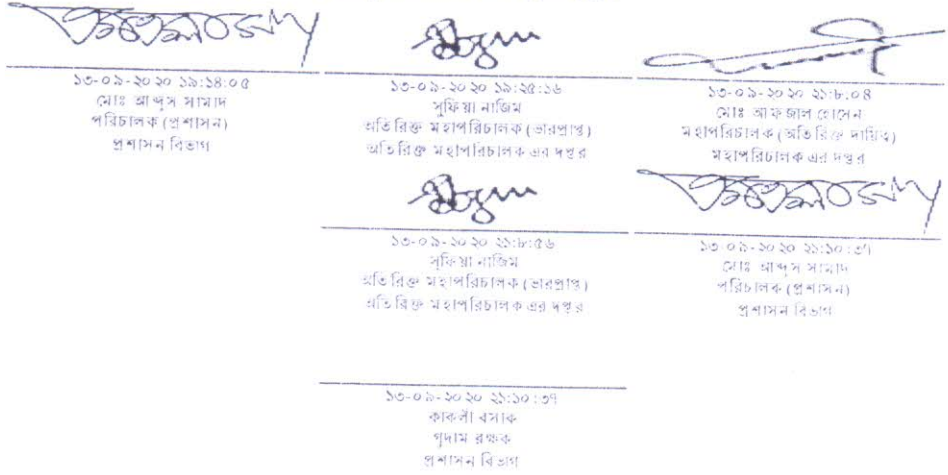 ১৩-০৯-২০২০ ১৯:১৪:০৫
মোঃ আব্দুস সামাদ
পরিচালক (প্রশাসন)
প্রশাসন বিভাগ
১৩-০৯-২০২০ ১৯:২৫:১৬
সুফিয়া নাজিম
অতিরিক্ত মহাপরিচালক (ভারপ্রাপ্ত)
অতিরিক্ত মহাপরিচালক এর দপ্তর
১৩-০৯-২০২০ ২১:৮:০৪
মোঃ আফজাল হোসেন
মহাপরিচালক (অতিরিক্ত দায়িত্ব)
মহাপরিচালক এর দপ্তর
১৩-০৯-২০২০ ২১:৮:৫৬
সুফিয়া নাজিম
অতিরিক্ত মহাপরিচালক (ভারপ্রাপ্ত)
অতিরিক্ত মহাপরিচালক এর দপ্তর
১৩-০৯-২০২০ ২১:১০:৩৭
মোঃ আব্দুস সামাদ
পরিচালক (প্রশাসন)
প্রশাসন বিভাগ
১৩-০৯-২০২০ ২১:১০:৩৭
কাকলী বসাক
গুদাম রক্ষক
প্রশাসন বিভাগ